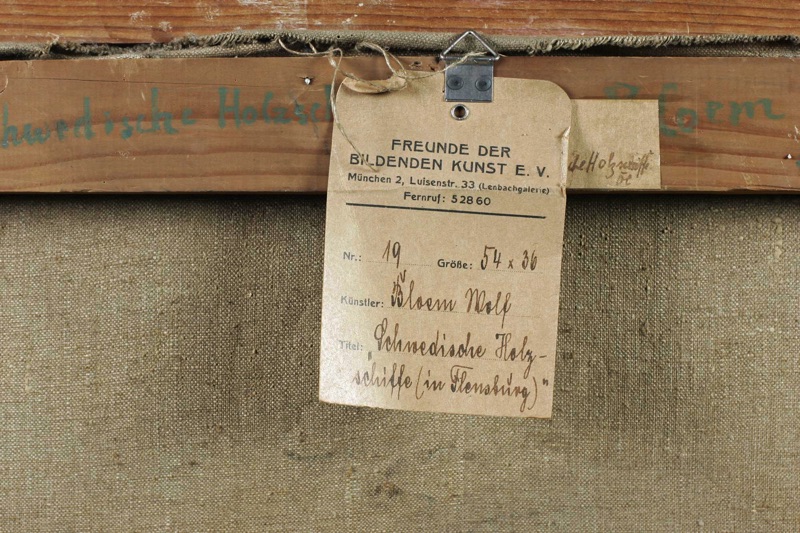 chwedische Holzsch
Bloem
FREUNDE DER
BILDENDEN KUNST E. V.
München 2, Luisenstr. 33 (Lenbachgalerie)
Fernruf: 52860
Nr.: 19 Größe: 54 x 36
Künstler: Bloem Wolf
Titel: „Schwedische Holz-
schiffe (in Flensburg)"